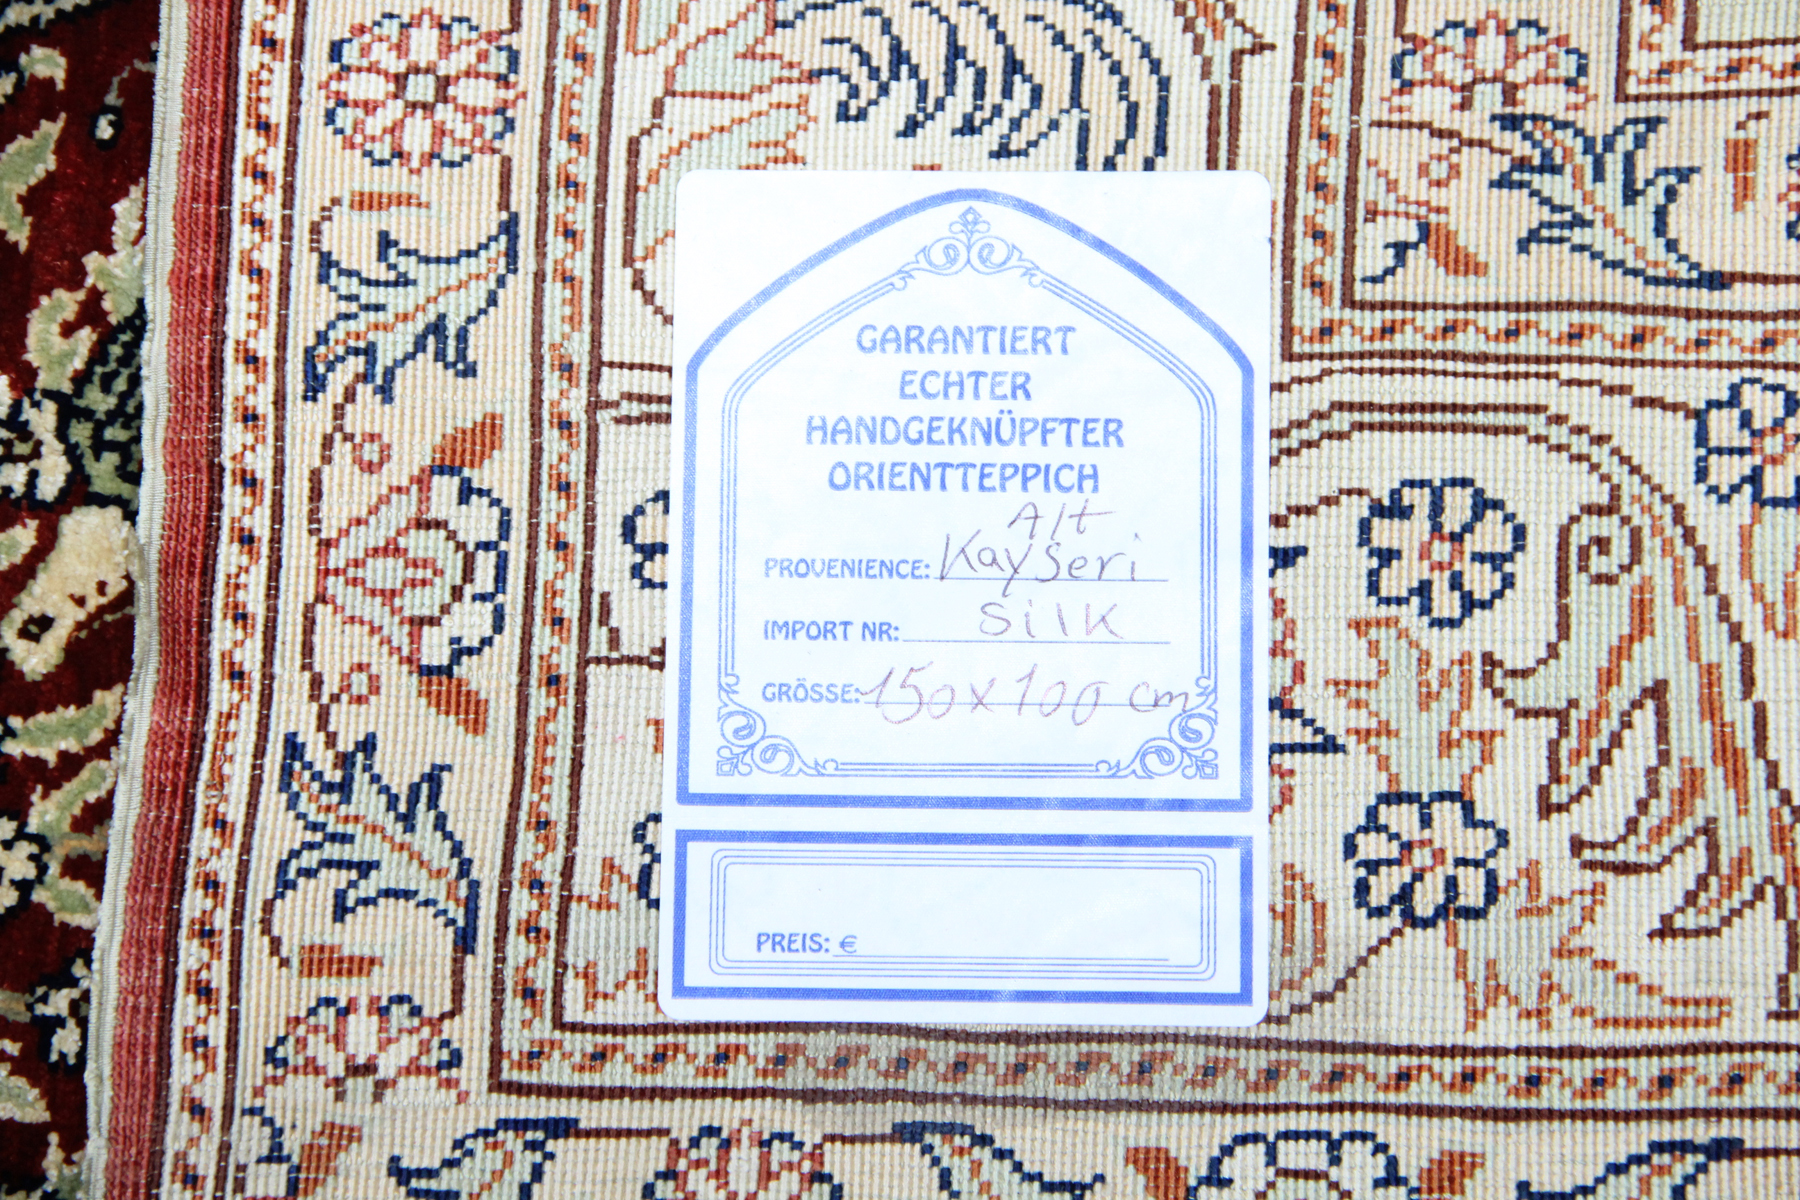 GARANTIERT
ECHTER
HANDGEKNÜPFTER
ORIENTTEPPICH
Alt
PROVENIENCE: Kayseri
IMPORT NR: Silk
GRÖSSE: 150x100 cm
PREIS: €